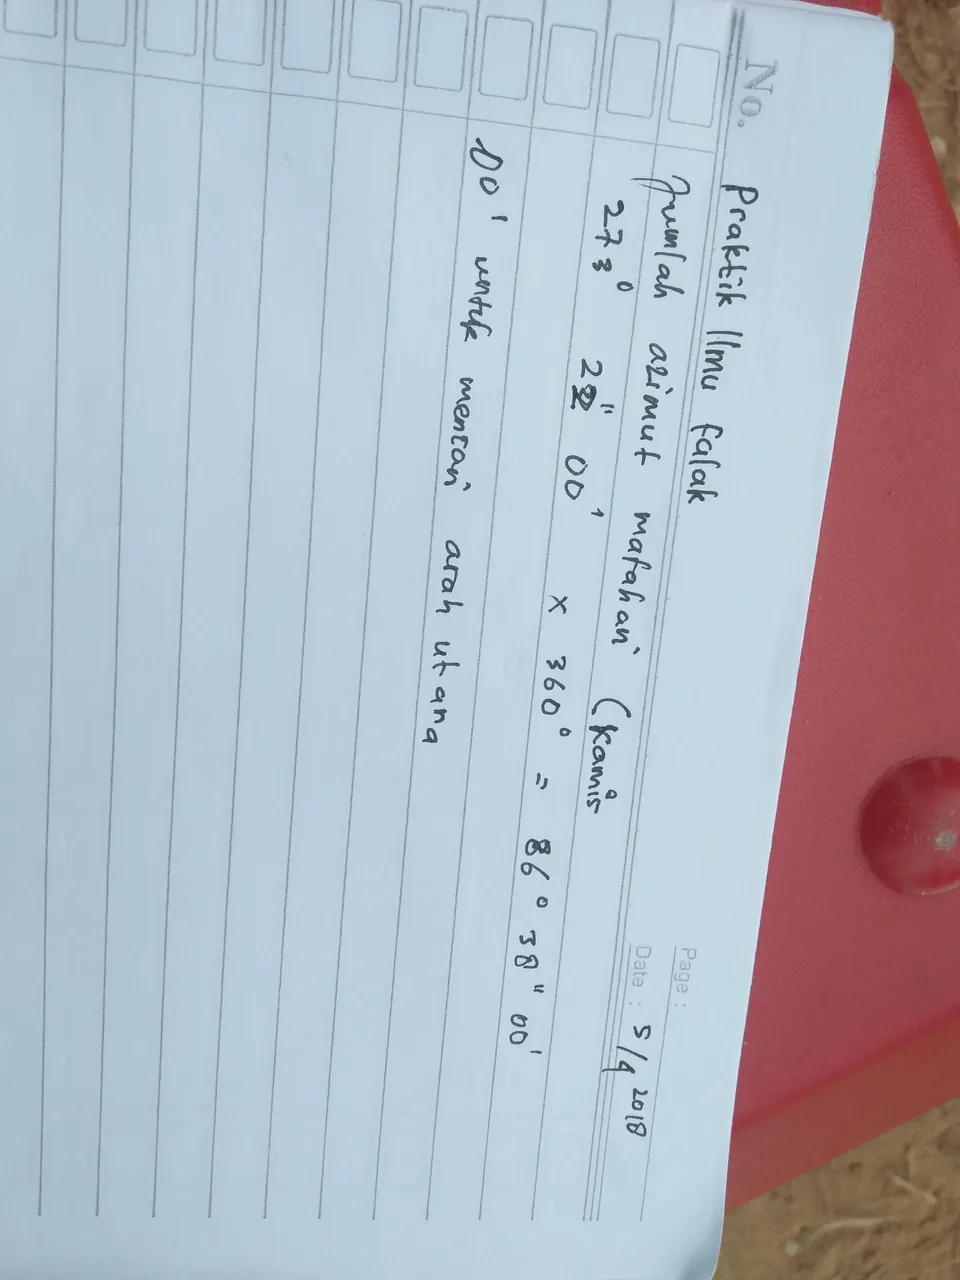 No.
Page :
Date : 5/4 2018
Praktik Ilmu falak
Jumlah azimut matahari (Kamis
273° 22" 00' x 360° = 86° 38" 00'
00' untuk mencari arah utara